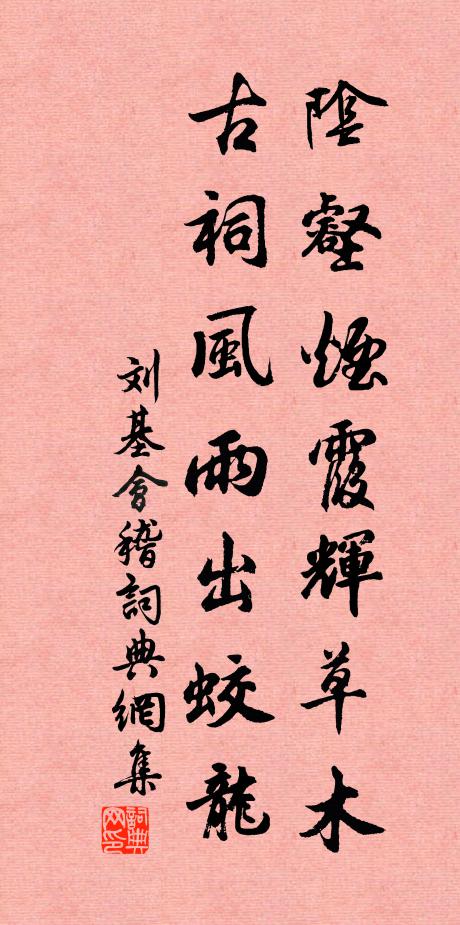 陰壑煙霞輝草木
古祠風雨出蛟龍
刘基會稽詞典網集
詞典網印